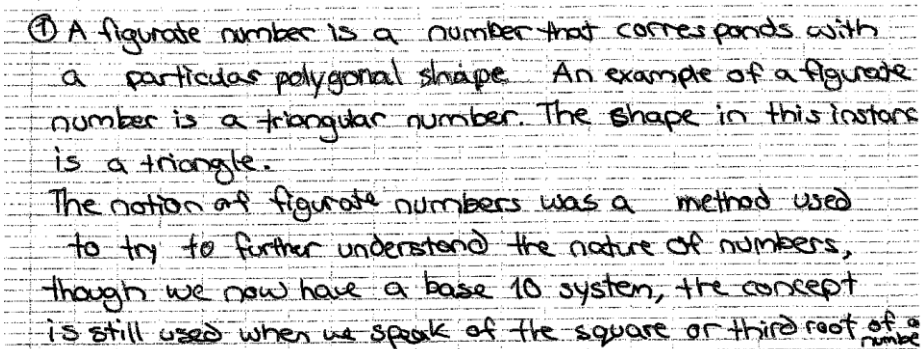 ① A figurate number is a number that corresponds with
a particular polygonal shape. An example of a figurate
number is a triangular number. The shape in this instanc
is a triangle.
The notion of figurate numbers was a method used
to try to further understand the nature of numbers,
though we now have a base 10 system, the concept
is still used when we speak of the square or third root of a
number